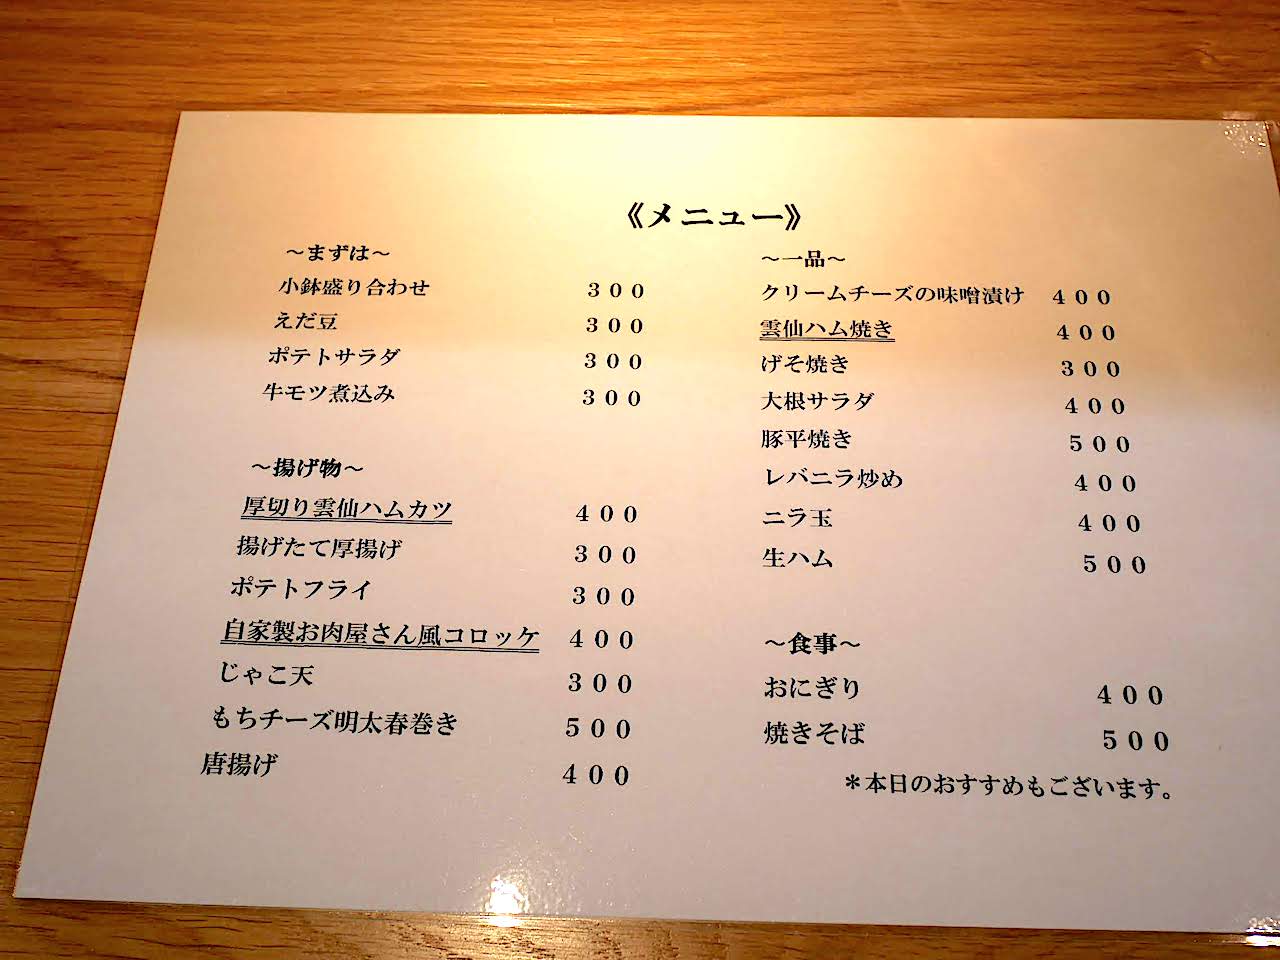 《メニュー》
～まずは～
小鉢盛り合わせ 300
えだ豆 300
ポテトサラダ 300
牛モツ煮込み 300
～揚げ物～
厚切り雲仙ハムカツ 400
揚げたて厚揚げ 300
ポテトフライ 300
自家製お肉屋さん風コロッケ 400
じゃこ天 300
もちチーズ明太春巻き 500
唐揚げ 400
～一品～
クリームチーズの味噌漬け 400
雲仙ハム焼き 400
げそ焼き 300
大根サラダ 400
豚平焼き 500
レバニラ炒め 400
ニラ玉 400
生ハム 500
～食事～
おにぎり 400
焼きそば 500
＊本日のおすすめもございます。